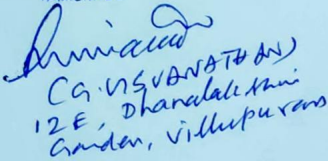 (G. VISVANATHAN)
12E, Dhanalakshmi
Garden, Villupuram